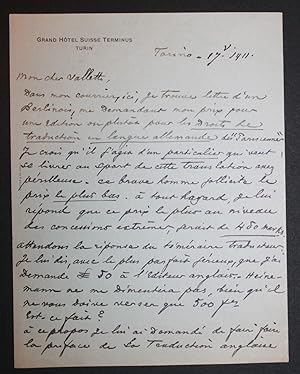 GRAND HÔTEL SUISSE TERMINUS
TURIN
Torino - 17 V 1911.
Mon cher Vallette,
Dans mon courrier, ici, je trouve lettre d'un
Berlinois, me demandant mon prix pour
une édition ou plutôt pour les Droits de
traduction en langue allemande du
Je crois qu'il s'agit d'un particulier qui veut
se livrer au sport de cette translation assez
périlleuse. Ce brave homme sollicite le
prix le plus bas. à tout hasard je lui
répond que ce prix le plus au niveau
des concessions extrêmes serait de 480 marks
abandons la réponse du téméraire traducteur.
Je lui dis avec le plus parfait sérieux, que j'ai
demandé £ 50 à l'Editeur anglais. Heine-
mann ne me démentira pas, bien qu'il
ne nous doive verser que 500 frs
Est-ce fait?
à ce propos je lui ai demandé de faire faire
la préface de la Traduction anglaise